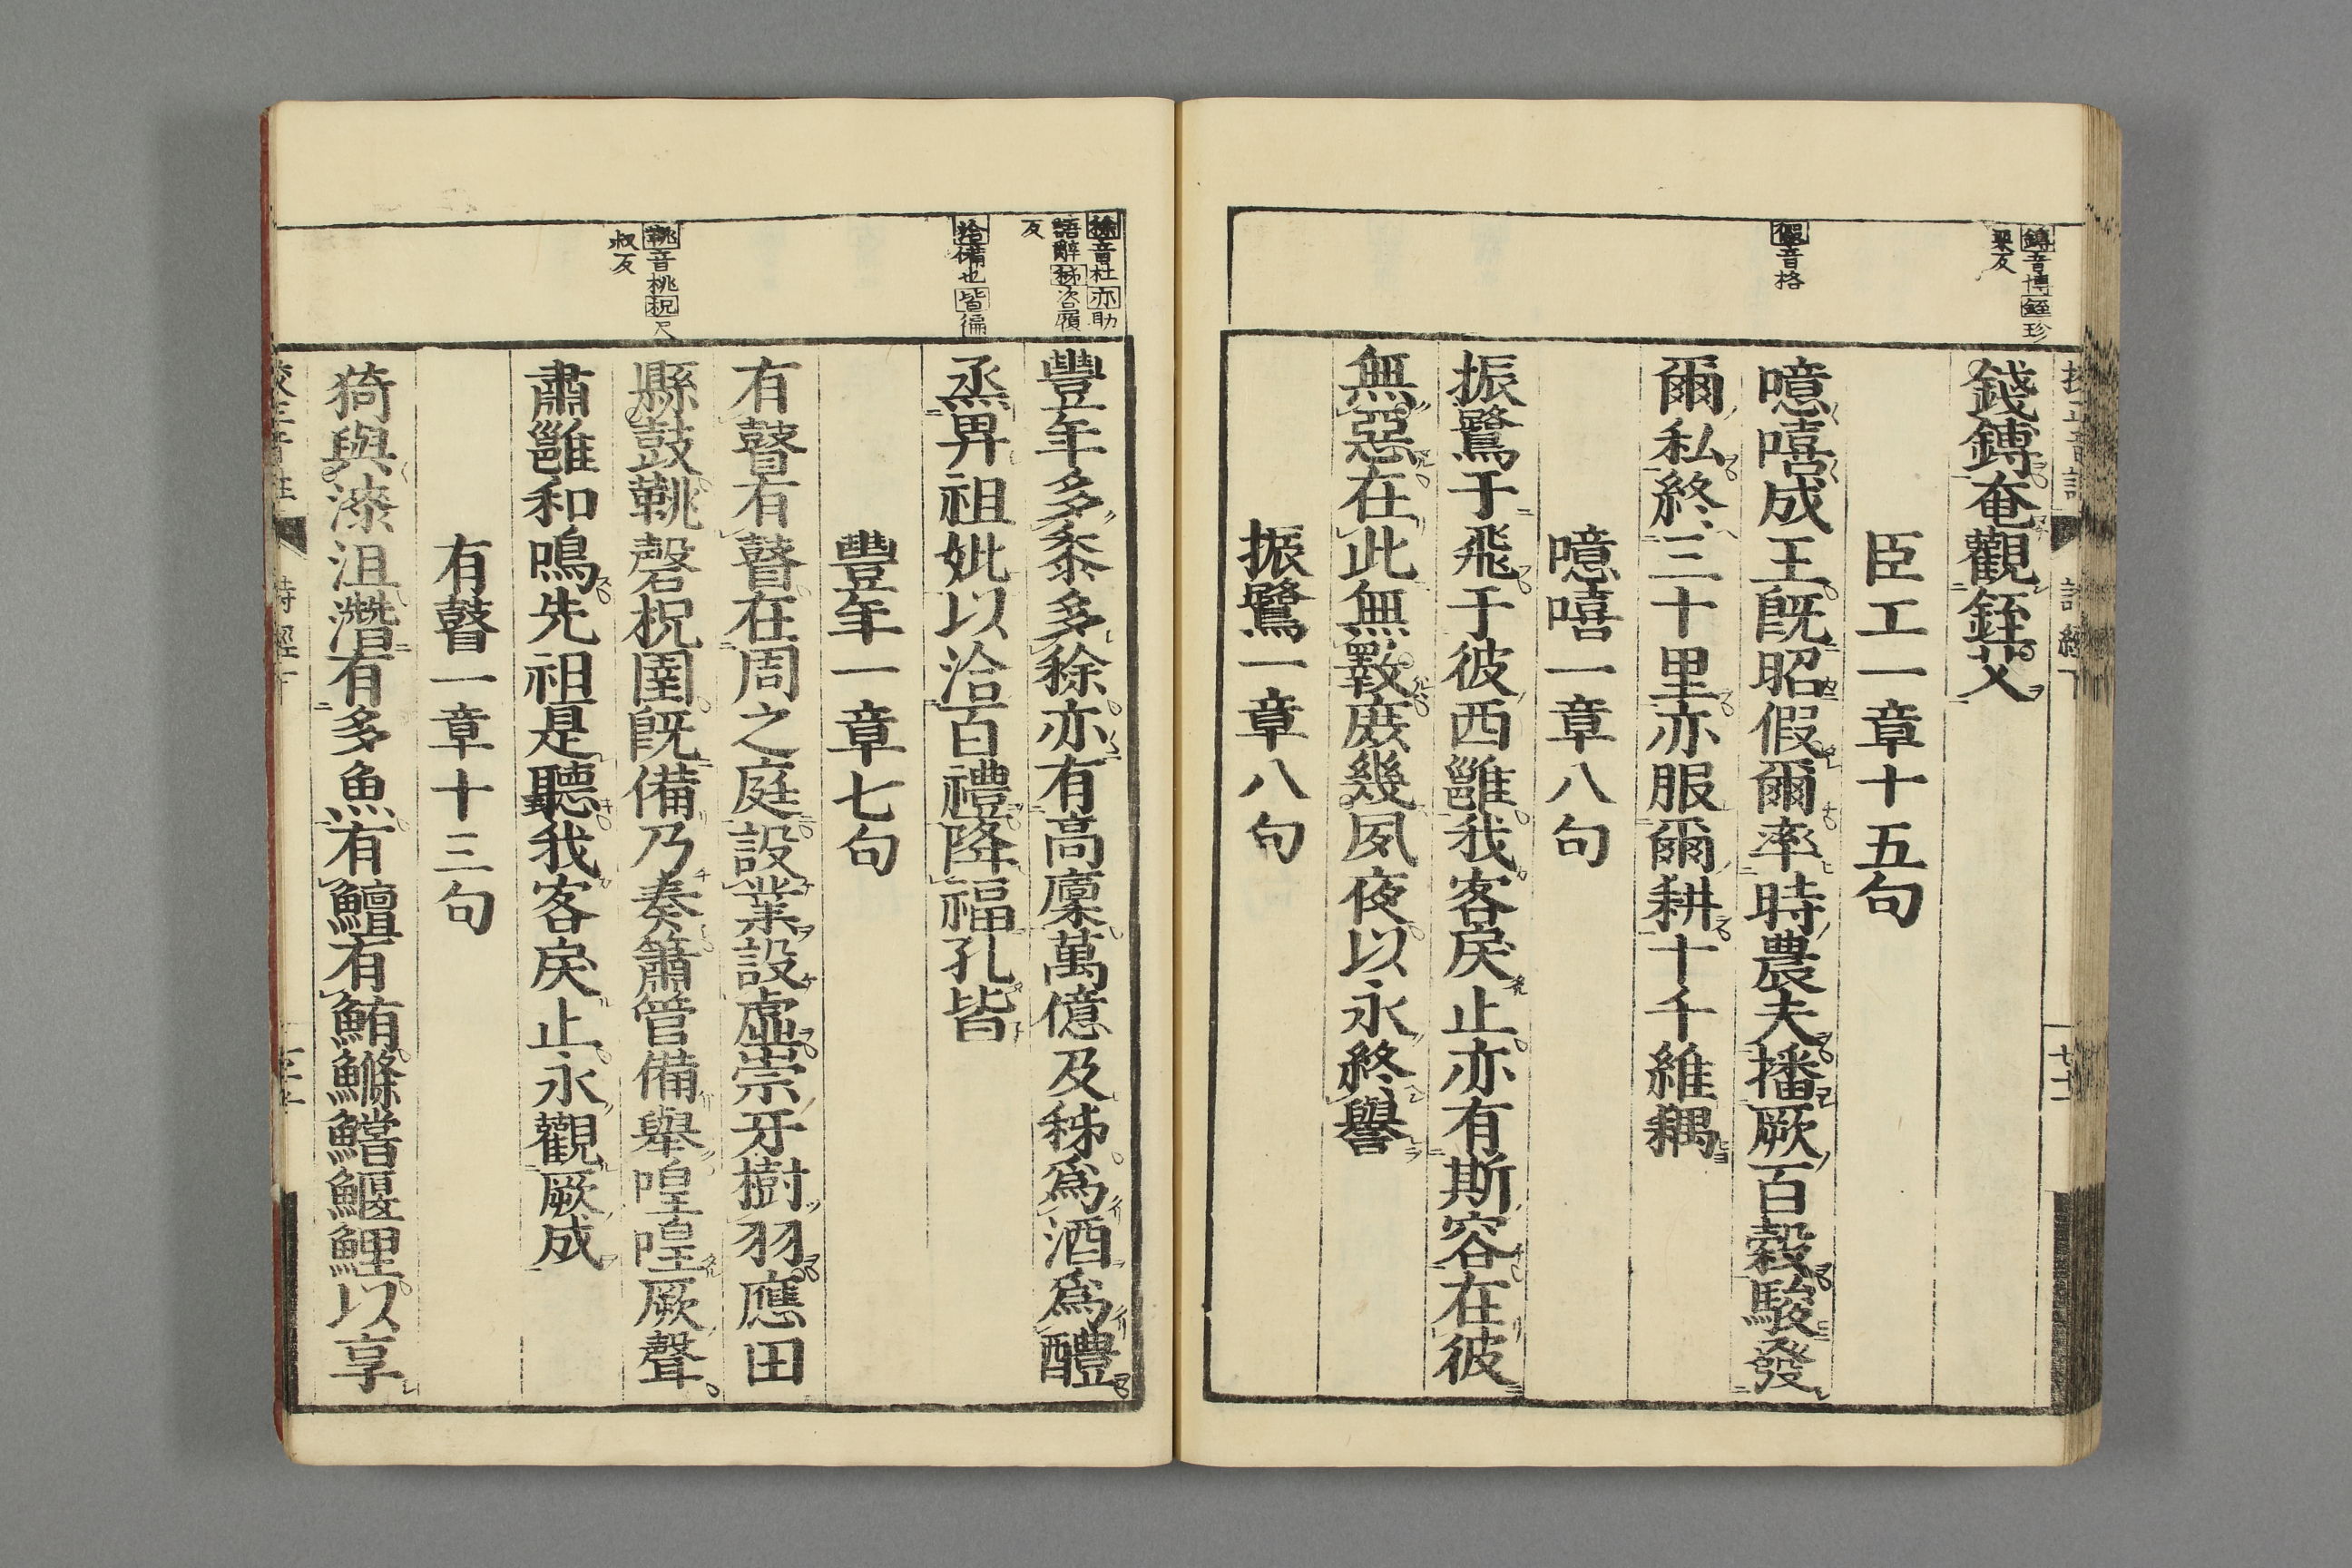 鎛音博銍珍
栗反
假音格
錢鎛奄觀銍艾
臣工一章十五句
噫嘻成王既昭假爾率時農夫播厥百穀駿發
爾私終三十里亦服爾耕十千維耦
噫嘻一章八句
振鷺于飛于彼西雝我客戾止亦有斯容在彼
無惡在此無斁庶幾夙夜以永終譽
振鷺一章八句
稌音杜亦助
語辭秭咨履
反
洽備也皆徧
鞉音桃柷尺
叔反
豐年多黍多稌亦有高廩萬億及秭爲酒爲醴
烝畀祖妣以洽百禮降福孔皆
豐年一章七句
有瞽有瞽在周之庭設業設虡崇牙樹羽應田
縣鼓鞉磬柷圉既備乃奏簫管備舉喤喤厥聲
肅雝和鳴先祖是聽我客戾止永觀厥成
有瞽一章十三句
猗與漆沮潛有多魚有鱣有鮪鰷鱨鰋鯉以享